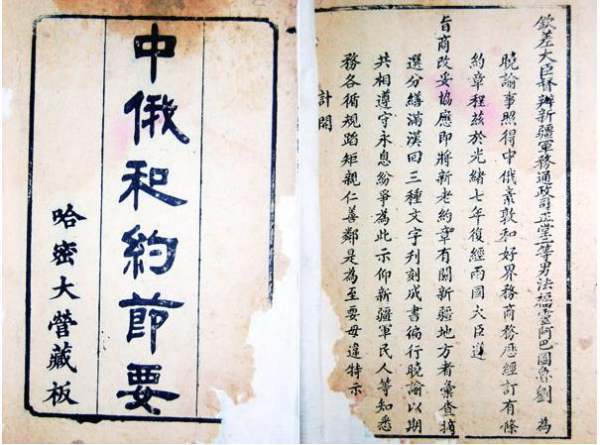 中俄和約節要
哈密大營藏板
欽差大臣督辦新疆軍務通政司正堂二等男法福靈阿巴圖魯劉 為
曉諭事照得中俄素敦和好界務商務歷經訂有條
約章程茲於光緒七年復經兩國大臣遵
旨商改妥協應即將新老約章有關新疆地方者彙查摘
選分繕滿漢回三種文字刋刻成書徧行曉諭以期
共相遵守永息紛爭為此示仰新疆軍民人等知悉
務各循規蹈矩親仁善鄰是為至要毋違特示
計開